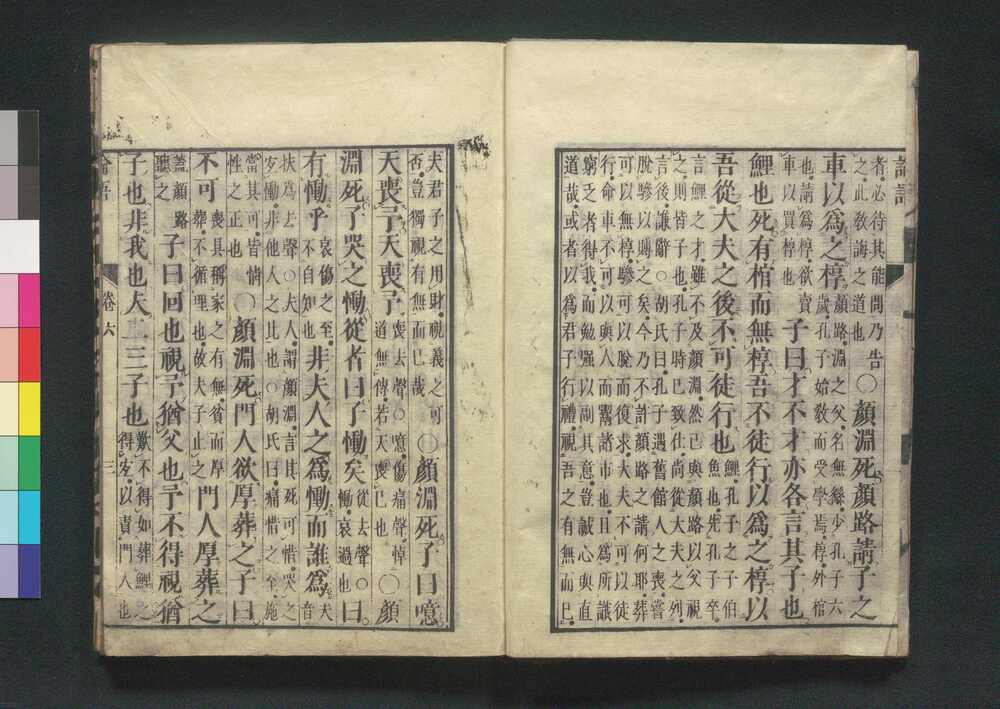 論語
者必待其能問乃告
之此敎誨之道也
〇顏淵死顏路請子之
車以爲之椁
顏路淵之父名無繇少孔子六
歲孔子始敎而受學焉椁外棺
也請爲椁欲賣
車以買椁也
子曰才不才亦各言其子也
鯉也死有棺而無椁吾不徒行以爲之椁以
吾從大夫之後不可徒行也
鯉孔子之子伯
魚也先孔子卒
言鯉之才雖不及顏淵然己與顏路以父視
之則皆子也孔子時已致仕尚從大夫之列
言後謙辭〇胡氏曰孔子遇舊館人之喪嘗
脫驂以賻之矣今乃不許顏路之請何耶葬
可以無椁驂可以脫而復求大夫不可以徒
行命車不可以與人而鬻諸市也且爲所識
窮乏者得我而勉强以副其意豈誠心與直
道哉或者以爲君子行禮視吾之有無而已
夫君子之用財視義之可
否豈獨視有無而已哉
〇顏淵死子曰噫
天喪予天喪予
喪去聲〇噫傷痛聲悼
道無傳若天喪己也
〇顏
淵死子哭之慟從者曰子慟矣
從去聲〇
慟哀過也
曰
有慟乎
哀傷之至
不自知也
非夫人之爲慟而誰爲
夫音
扶爲去聲〇夫人謂顏淵言其死可惜哭之
宜慟非他人之比也〇胡氏曰痛惜之至施
當其可皆情
性之正也
〇顏淵死門人欲厚葬之子曰
不可
喪具稱家之有無貧而厚
葬不循理也故夫子止之
門人厚葬之
蓋顏路
聽之
子曰回也視予猶父也予不得視猶
子也非我也夫二三子也
歎不得如葬鯉之
得宜以責門人也
論語
卷六
三